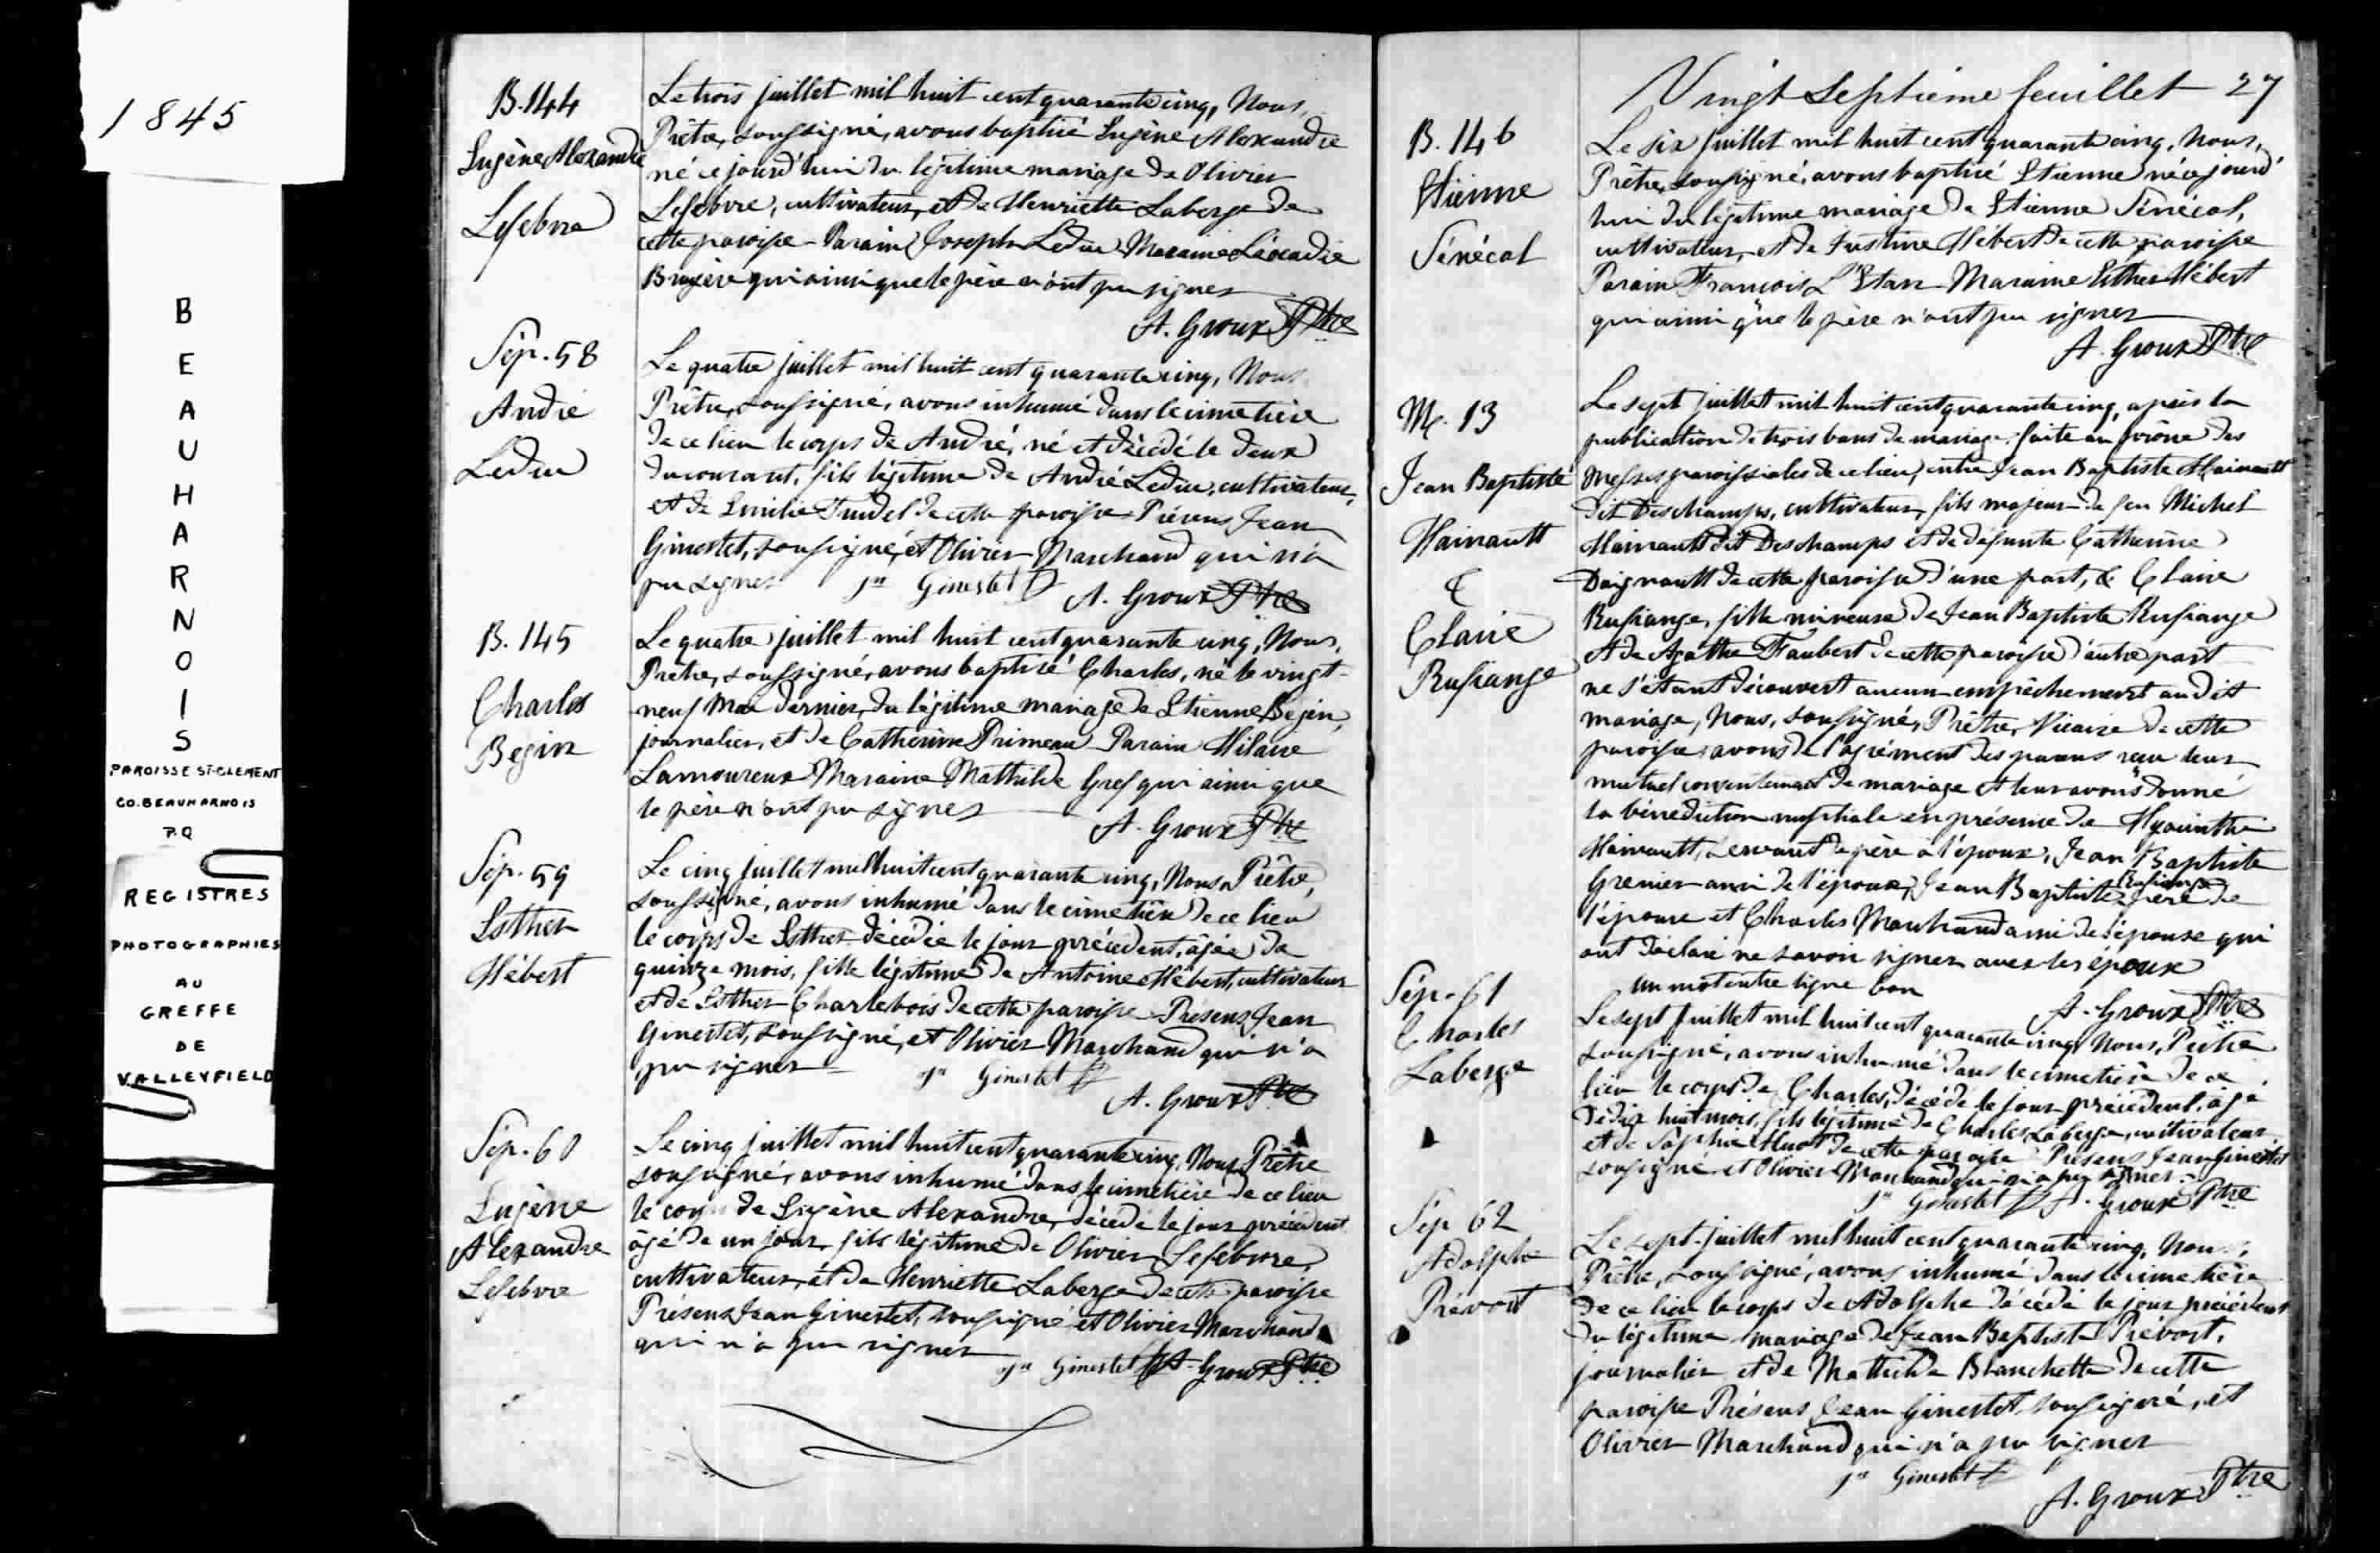 1845
B
E
A
U
H
A
R
N
O
I
S
PAROISSE ST-CLEMENT
CO. BEAUHARNOIS
P.Q
REGISTRES
PHOTOGRAPHIES
AU
GREFFE
DE
VALLEYFIELD
B. 144
Eugène Alexandre
Lefebvre
Le trois juillet mil huit cent quarante cinq, Nous,
Prêtre, soussigné, avons baptisé Eugène Alexandre
né ce jourd'hui du légitime mariage de Olivier
Lefebvre, cultivateur, et de Henriette Laberge de
cette paroisse - Parain Joseph Leduc Maraine Léocadie
Bruyère qui ainsi que le père n'ont pu signer
A. Groux Ptre
Sép. 58
André
Leduc
Le quatre juillet mil huit cent quarante cinq, Nous
Prêtre, soussigné, avons inhumé dans le cimetière
de ce lieu le corps de André, né et décédé le deux
du courant, fils légitime de André Leduc, cultivateur,
et de Emilie Trudel de cette paroisse Présens Jean
Ginestet, soussigné, et Olivier Marchand qui n'a
pu signer Jn Ginestet
A. Groux Ptre
B. 145
Charles
Begin
Le quatre juillet mil huit cent quarante cinq, Nous,
Prêtre, soussigné, avons baptisé Charles, né le vingt-
neuf Mai dernier, du légitime mariage de Etienne Begin,
journalier, et de Catherine Primeau Parain Hilaire
Lamoureux Maraine Mathilde Gref qui ainsi que
le père n'ont pu signer
A. Groux Ptre
Sép. 59
Esther
Hébert
Le cinq juillet mil huit cent quarante cinq, Nous Prêtre,
soussigné, avons inhumé dans le cimetière de ce lieu
le corps de Esther décédée le jour précédent, agée de
quinze mois, fille légitime de Antoine Hébert, cultivateur
et de Esther Charlebois de cette paroisse Présens Jean
Ginestet, soussigné, et Olivier Marchand qui n'a
pu signer Jn Ginestet
A. Groux Ptre
Sép. 60
Eugène
Alexandre
Lefebvre
Le cinq juillet mil huit cent quarante cinq, Nous Prêtre
soussigné, avons inhumé dans le cimetière de ce lieu
le corps de Eugène Alexandre, décédé le jour précédent
agé de un jour, fils légitime de Olivier Lefebvre,
cultivateur, et de Henriette Laberge de cette paroisse
Présens Jean Ginestet, soussigné et Olivier Marchand
qui n'a pu signer
Jn Ginestet A. Groux Ptre
Vingt Septième feuillet 27
B. 146
Etienne
Sénécal
Le six juillet mil huit cent quarante cinq, Nous,
Prêtre, soussigné, avons baptisé Etienne né ce jourd'
hui du légitime mariage de Etienne Sénécal,
cultivateur, et de Justine Hébert de cette paroisse
Parain François Maraine Esther Hébert
qui ainsi que le père n'ont pu signer
A. Groux Ptre
M. 13
Jean Baptiste
Hainault
&
Claire
Rufiange
Le sept juillet mil huit cent quarante cinq, après la
publication de trois bans de mariage, faite au prône des
Messes paroissiales de ce lieu, entre Jean Baptiste Hainault
dit Deschamps, cultivateur, fils majeur de feu Michel
Hainault dit Deschamps et de défunte Catherine
Daignault de cette paroisse d'une part, & Claire
Rufiange, fille mineure de Jean Baptiste Rufiange
et de Agathe Faubert de cette paroisse d'autre part
ne s'étant découvert aucun empêchement au dit
mariage, Nous, soussigné, Prêtre, Vicaire de cette
paroisse, avons de l'agrément des parens reçu leur
mutuel consentement de mariage et leur avons donné
la bénédiction nuptiale en présence de Hyacinthe
Hainault, servant de père à l'époux, Jean Baptiste
Grenier ami de l'époux, Jean Baptiste Rufiange père de
l'épouse et Charles Marchand ami de l'épouse qui
ont déclaré ne savoir signer avec les époux
un mot entre ligne bon
A. Groux Ptre
Sép. 61
Charles
Laberge
Le sept juillet mil huit cent quarante cinq Nous, Prêtre
soussigné, avons inhumé dans le cimetière de ce
lieu le corps de Charles, décédé le jour précédent, agé
de dix huit mois, fils légitime de Charles Laberge, cultivateur
et de Sophie Huot de cette paroisse Présens Jean Ginestet
soussigné et Olivier Marchand qui n'a pu signer.
Jn Ginestet A. Groux Ptre
Sép 62
Adolphe
Prévost
Le sept juillet mil huit cent quarante cinq, Nous,
Prêtre, soussigné, avons inhumé dans le cimetière
de ce lieu le corps de Adolphe décédé le jour précédent
du légitime mariage de Jean Baptiste Prévost,
journalier et de Mathilde Blanchette de cette
paroisse Présens Jean Ginestet, soussigné, et
Olivier Marchand qui n'a pu signer
Jn Ginestet
A. Groux Ptre